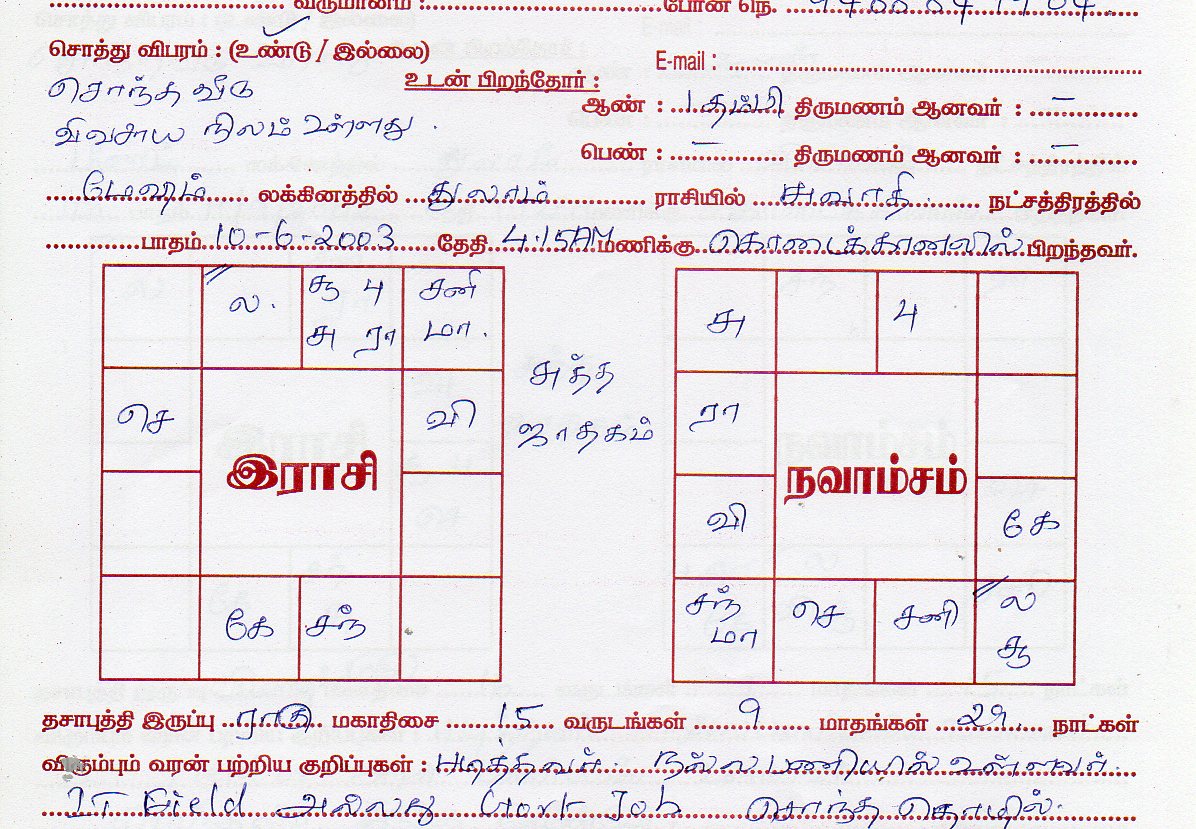 வருமானம் : போன் நெ.
சொத்து விபரம் : (உண்டு / இல்லை) E-mail :
சொந்த வீடு உடன் பிறந்தோர் :
ஆண் : 1 தம்பி திருமணம் ஆனவர் : –
விவசாய நிலம் உள்ளது.
பெண் : – திருமணம் ஆனவர் : –
மேஷம் லக்கினத்தில் துலாம் ராசியில் சுவாதி நட்சத்திரத்தில்
பாதம் 10-6-2003 தேதி 4.15AM மணிக்கு கொடைக்கானலில் பிறந்தவர்.
ல. சூ பு சனி சு பு
சு ரா மா.
சுத்த
செ வி ரா
ஜாதகம்
இராசி நவாம்சம்
வி கே
கே சந் சந் செ சனி ல
மா சூ
தசாபுத்தி இருப்பு ராகு மகாதிசை 15 வருடங்கள் 9 மாதங்கள் 29 நாட்கள்
விரும்பும் வரன் பற்றிய குறிப்புகள் : படித்தவர். நல்ல பணியில் உள்ளவர்.
IT Field அல்லது Govt Job சொந்த தொழில்.